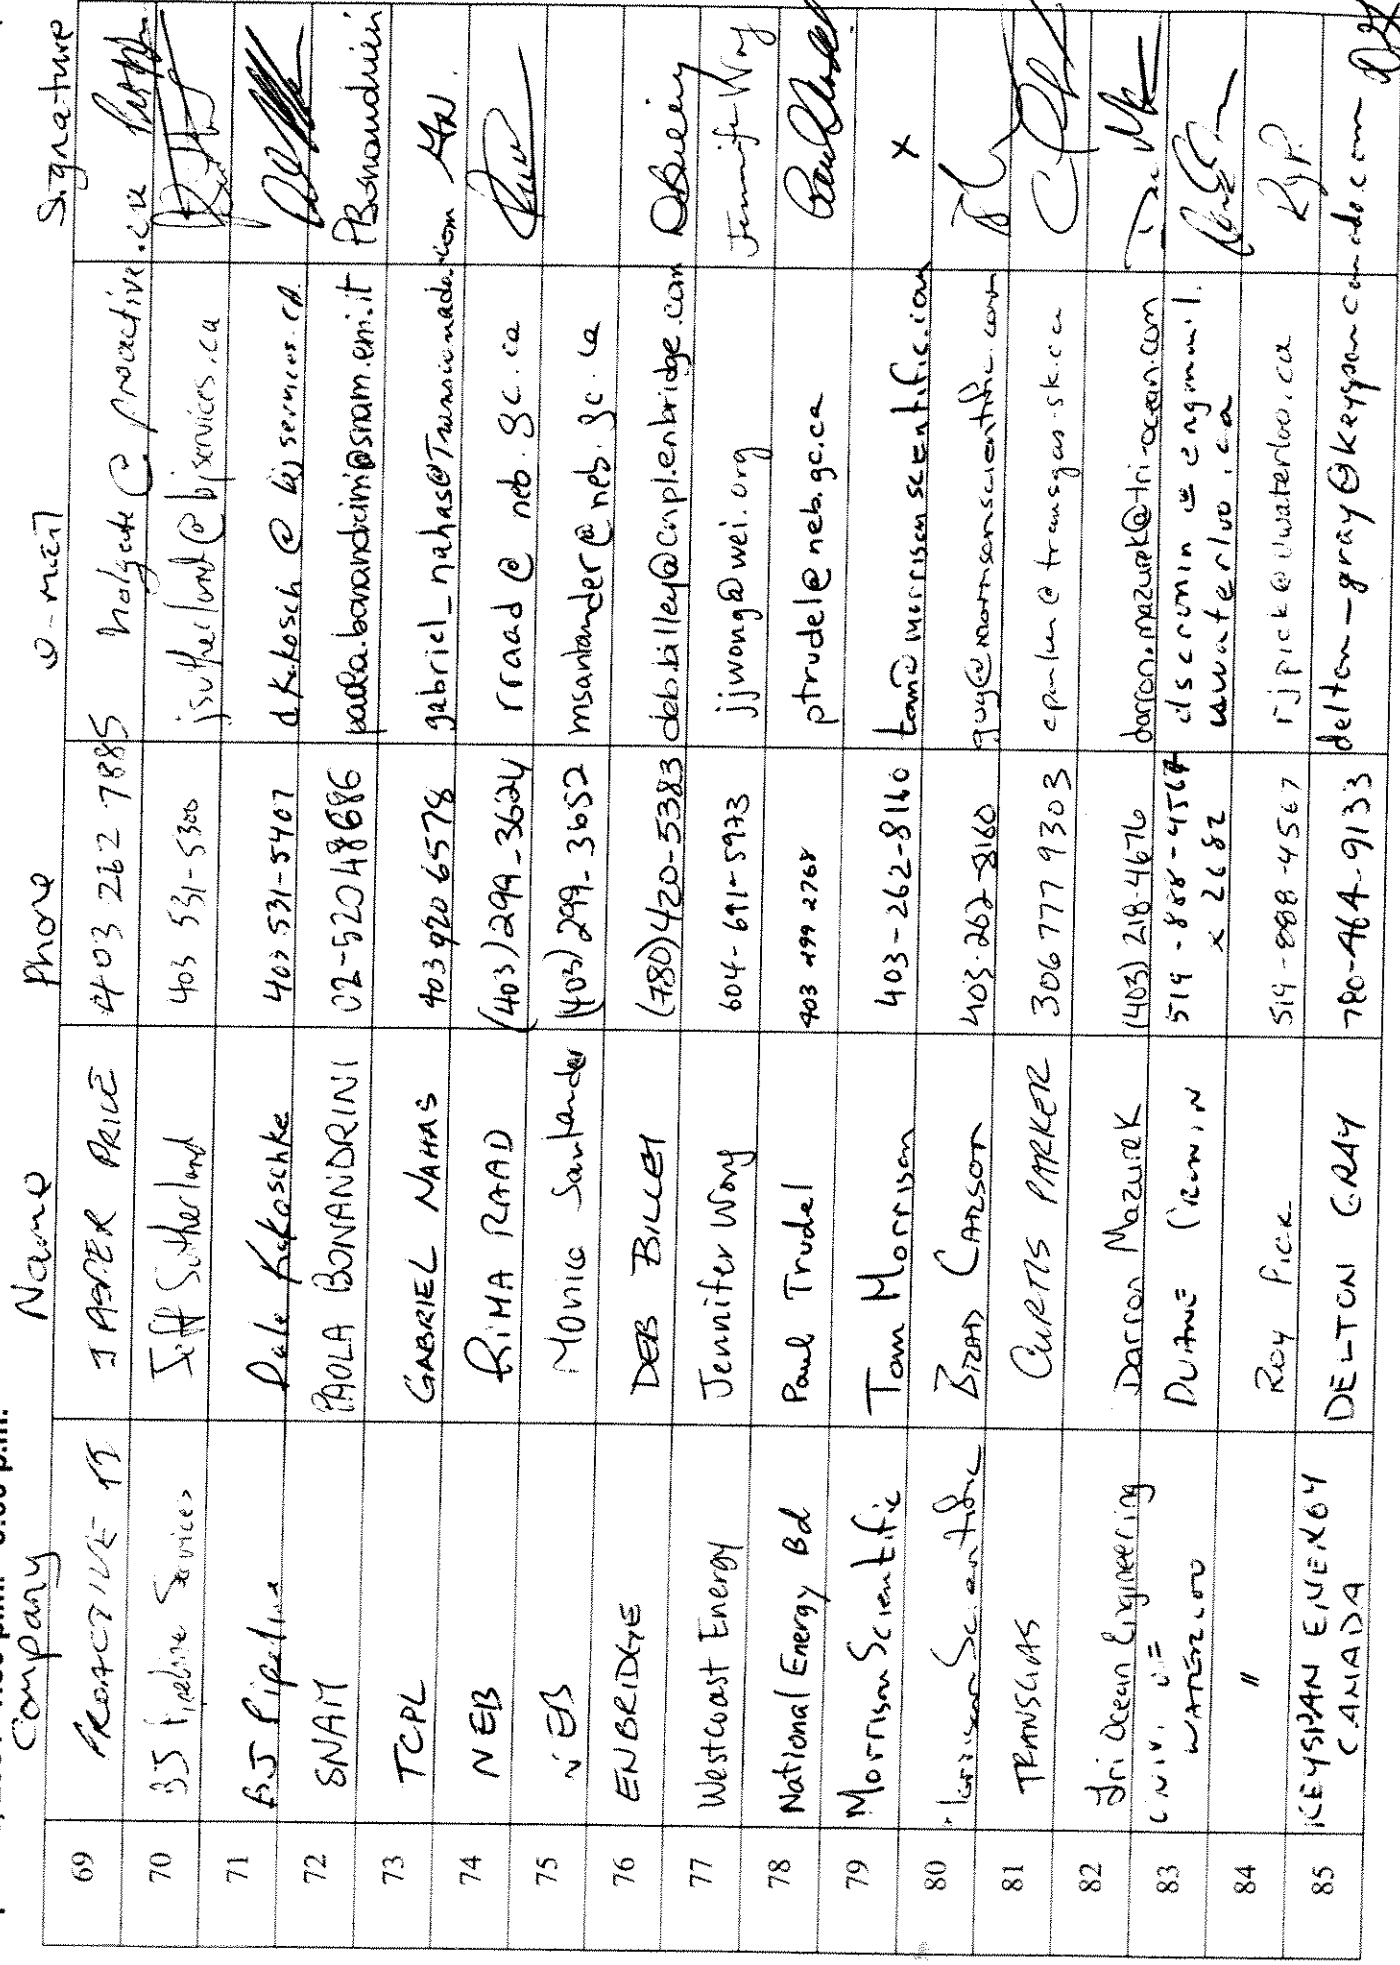 Company Name Phone e-mail Signature
69 PROACTIVE JASPER PRICE 403 262 7885 holgate@proactive.ca
70 BJ Pipeline Services Jeff Sutherland 403 531-5300 jsutherland@bjservices.ca
71 BJ Pipeline Dale Kakoschke 403 531-5407 dkakosch@bjservices.ca
72 SNAM PAOLA BONANDRINI 02-52048686 paola.bonandrini@snam.eni.it PBonandrini
73 TCPL GABRIEL NAHAS 403 920 6578 gabriel_nahas@Transcanada.com
74 NEB RIMA RAAD (403) 299-3624 rraad@neb.gc.ca
75 NEB Monica Santander (403) 299-3652 msantander@neb.gc.ca
76 ENBRIDGE DEB BILLEY (780) 420-5383 deb.billey@cnpl.enbridge.com
77 Westcoast Energy Jennifer Wong 604-691-5973 jjwong@wei.org Jennifer Wong
78 National Energy Bd Paul Trudel 403 299 2768 ptrudel@neb.gc.ca
79 Morrison Scientific Tom Morrison 403-262-8160 tom@morrisonscientific.com X
80 Morrison Scientific BRAD CARSON 403-262-8160 guy@morrisonscientific.com
81 TRANSGAS CURTIS PARKER 306 777 9303 cparker@transgas.sk.ca
82 Tri Ocean Engineering Darron Mazurek (403) 218-4676 darron.mazurek@tri-ocean.com
83 UNIV. OF DUANE CRONIN 519-888-4567 dscronin@engmail.
WATERLOO x 2682 uwaterloo.ca
84 " ROY PICK 519-888-4567 rjpick@uwaterloo.ca
85 KEYSPAN ENERGY DELTON GRAY 780-464-9133 delton-gray@keyspancanada.com
CANADA